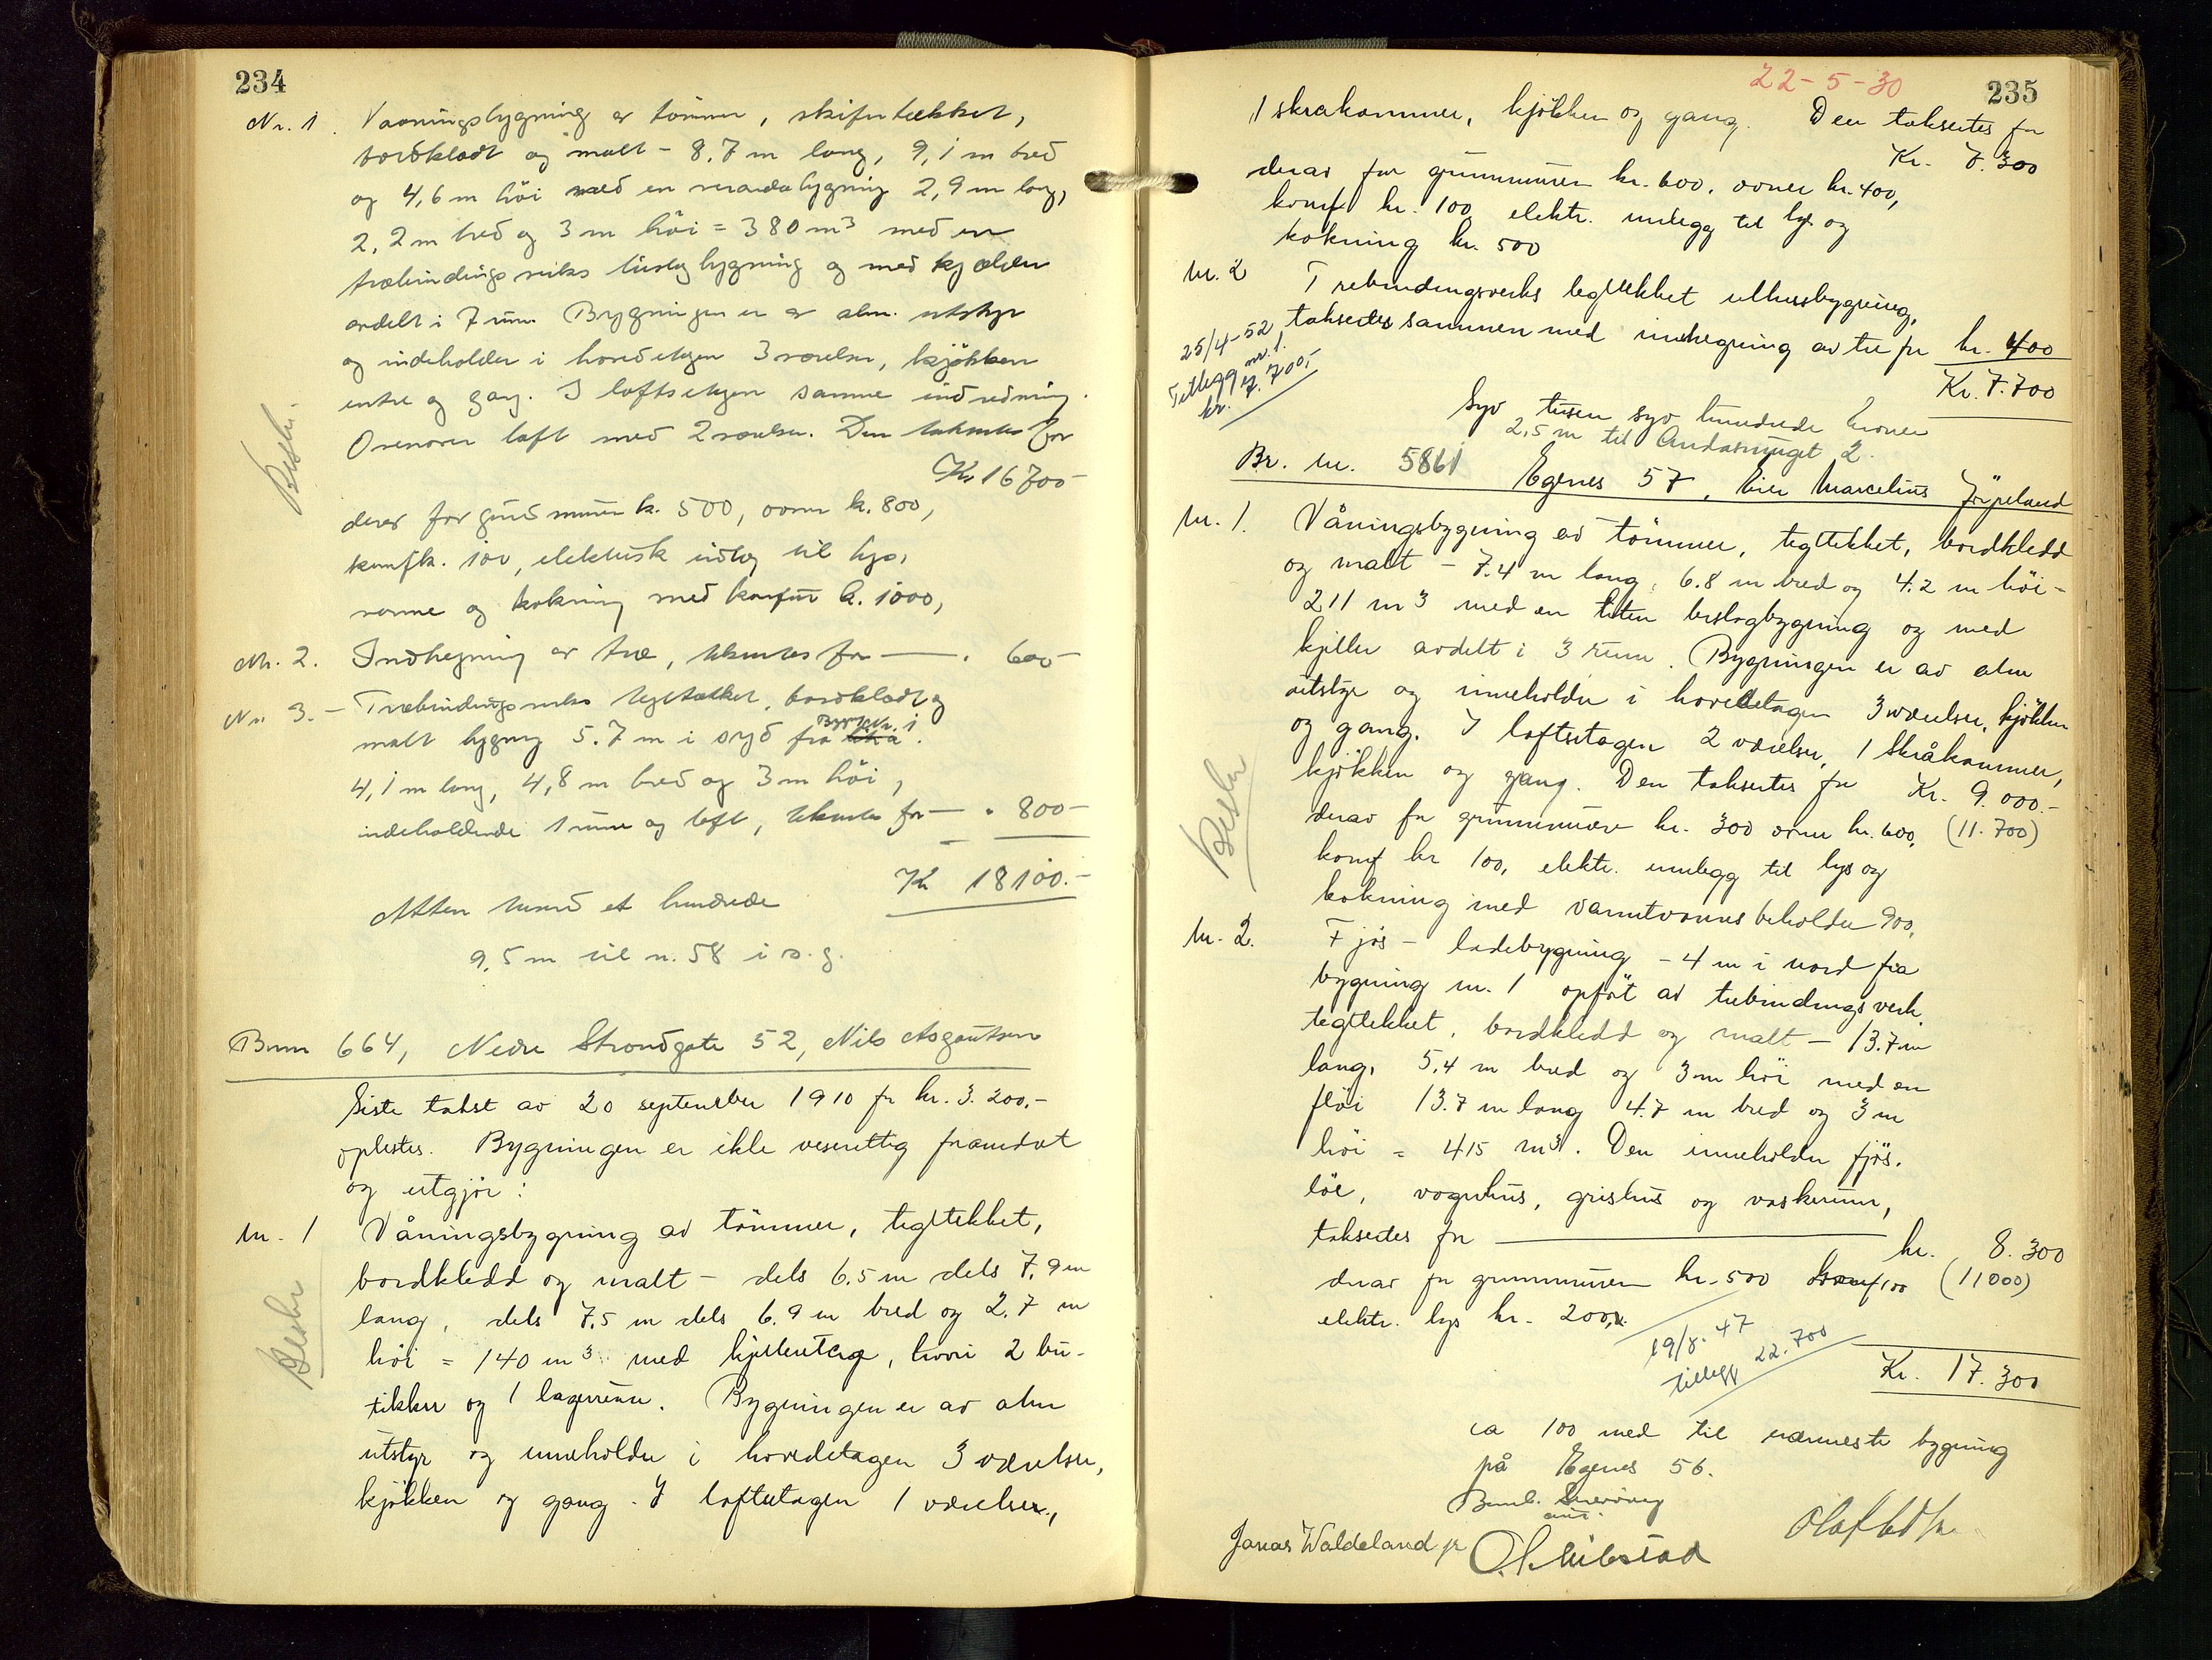 234
Nr. 1. Vaaningsbygning av tömmer, skifertækket,
bordklædt og malt - 8,7 m lang, 9,1 m bred
og 4,6 m höi med en verandabygning 2,9 m lang,
2,2 m bred og 3 m höi = 380 m³ med en
træbindingsverks bislagbygning og med kjelder
avdelt i 7 rum. Bygningen er av alm. utstyr
og indeholder i hovedetagen 3 værelser, kjökken
entre og gang. I loftsetagen samme indredning.
Ovenover loft med 2 værelser. Den takseres for
Kr 16700-
derav for grundmuren kr. 500, ovner kr. 800,
komf kr. 100, elektrisk indlæg til lys,
varme og kokning med komfur kr. 1000,
Nr. 2. Indhegning av træ, takseres for — " 600-
Nr. 3. - Træbindingsverks tegltækket, bordklædt og
malt bygning 5.7 m i syd fra bygn. nr. 1.
4,1 m lang, 4,8 m bred og 3 m höi,
indeholdende 1 rum og loft, takseres for — " 800-
Kr 18100.-
Atten tusind et hundrede
9,5 m til n. 58 i s. g.
Besikt.
Brnr 664, Nedre Strandgate 52, Nils Asgautsen
Siste takst av 20 september 1910 for kr. 3.200.-
oplestes. Bygningen er ikke vesentlig forandret
og utgjör:
Nr. 1 Våningsbygning av tömmer, tegltekket,
bordkledd og malt - dels 6.5 m dels 7,9 m
lang, dels 7,5 m dels 6.9 m bred og 2.7 m
höi = 140 m³ med kjelleretage, hvori 2 bu-
tikker og 1 lagerrum. Bygningen er av alm
utstyr og inneholder i hovedetagen 3 værelser,
kjökken og gang. I loftsetagen 1 værelser,
Besikt
22-5-30
235
1 skråkammer, kjökken og gang. Den takseres for
Kr. 7.300
derav for grunnmuren kr. 600, ovner kr. 400,
komf kr. 100 elektr. innlegg til lys og
kokning kr. 500
Nr. 2 Trebindingsverks tegltekket uthusbygning,
takseres sammen med innhegning av tre for kr. 400
Kr. 7.700
25/4-52
Tillegg nr. 1.
kr. 700,-
Syv tusen syv hundrede kroner
2,5 m til Andasmuget 2.
Br. nr. 5861 Egenes 57, eier Marcelius Jörpeland
Nr. 1. Våningsbygning av tömmer, tegltekket, bordkledd
og malt - 7.4 m lang, 6.8 m bred og 4.2 m höi -
211 m³ med en liten bislagbygning og med
kjeller avdelt i 3 rum. Bygningen er av alm
utstyr og inneholder i hovedetagen 3 værelser, kjökken
og gang. I loftsetagen 2 værelser, 1 skråkammer,
kjökken og gang. Den takseres for Kr. 9.000.-
derav for grunnmuren kr. 300 ovner kr. 600, (11.700)
komf kr 100, elektr. innlegg til lys og
kokning med varmtvannsbeholder 900,
Besikt
Nr. 2. Fjös - ladebygning - 4 m i nord fra
bygning nr. 1 opfört av trebindingsverk
tegltekket, bordkledd og malt - 13.7 m
lang, 5,4 m bred og 3 m höi med en
flöi 13.7 m lang 4.7 m bred og 3 m
höi = 415 m³. Den inneholder fjös,
löe, vognhus, grishus og vaskerum,
takseres for — kr. 8.300
derav for grunnmuren kr. 500 komf 100 (11000)
elektr. lys kr. 200,-
19/8-47
tillegg 22.700
Kr. 17.300
ca 100 med til nærmeste bygning
på Egenes 56.
Jonas Waldeland jr